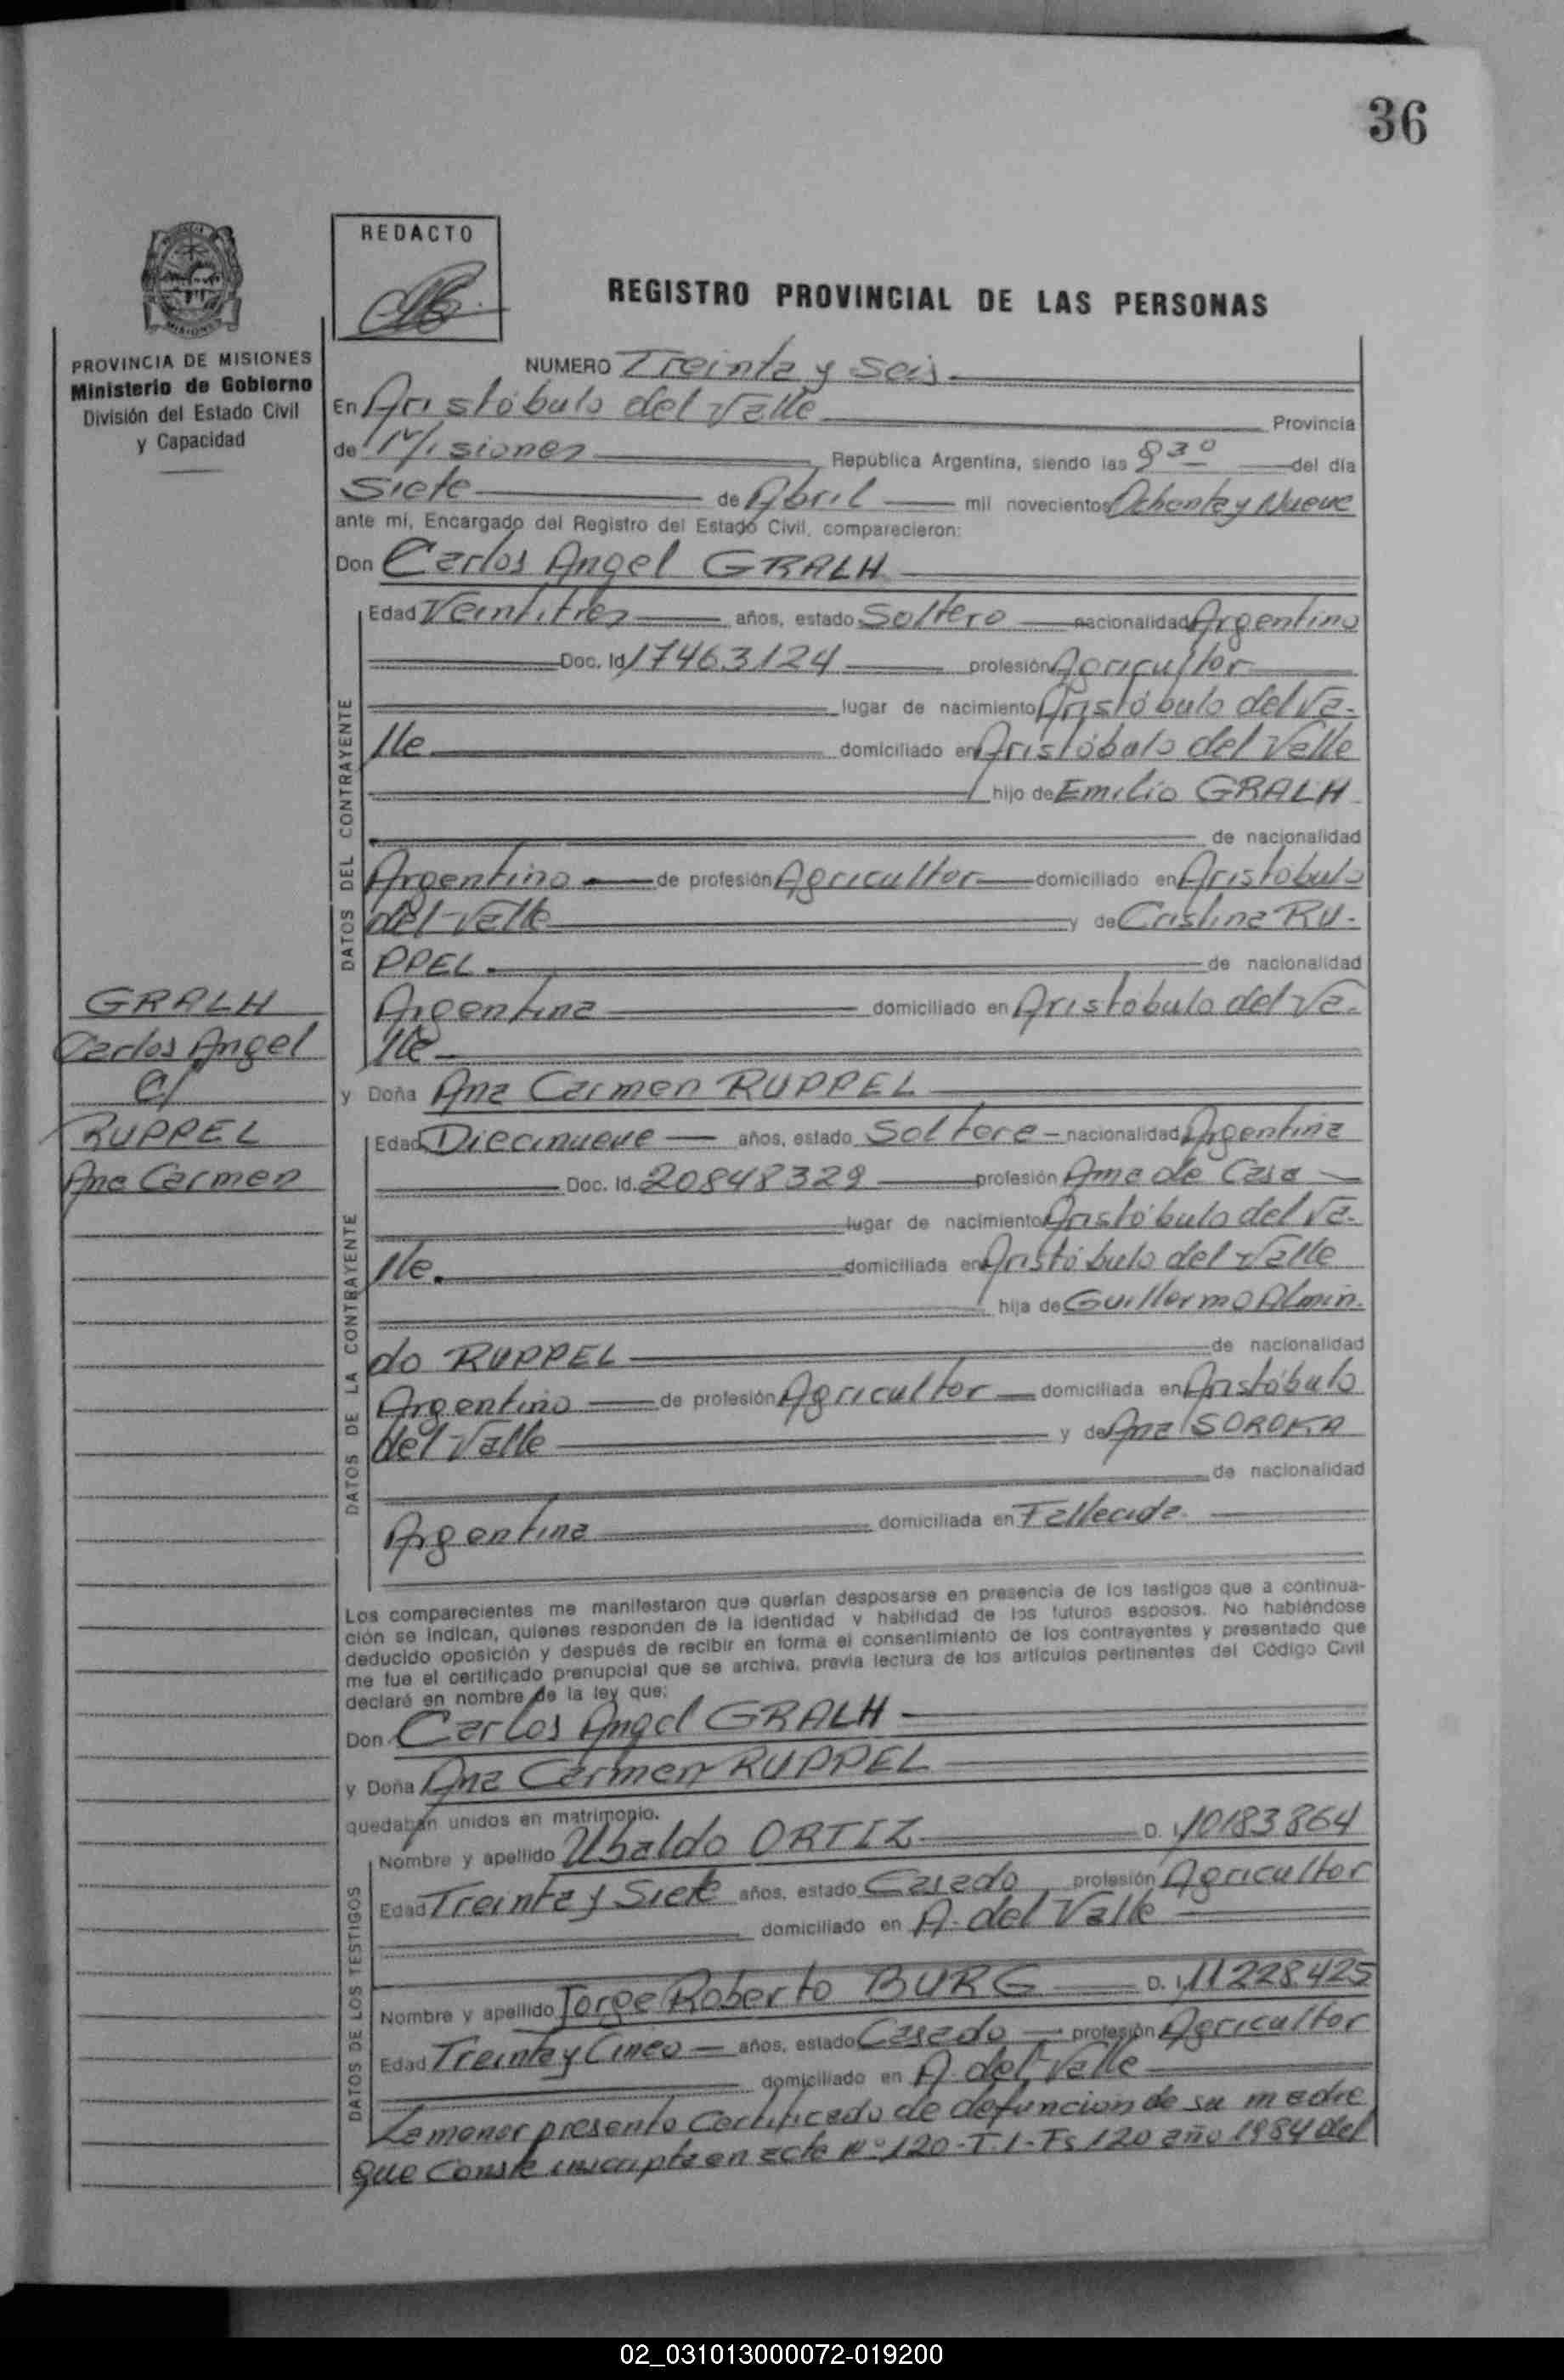 36
REDACTO
REGISTRO PROVINCIAL DE LAS PERSONAS
PROVINCIA DE MISIONES
Ministerio de Gobierno
División del Estado Civil
y Capacidad
NUMERO Treinta y Seis
En Aristóbulo del Valle Provincia
de Misiones República Argentina, siendo las 8 30 del día
Siete de Abril mil novecientos Ochenta y Nueve
ante mí, Encargado del Registro del Estado Civil, comparecieron:
Don Carlos Angel GRALH
DATOS DEL CONTRAYENTE
Edad Veintitres años, estado Soltero nacionalidad Argentino
Doc. Id 17463124 profesión Agricultor
lugar de nacimiento Aristóbulo del Va-
lle domiciliado en Aristóbulo del Valle
hijo de Emilio GRALH
de nacionalidad
Argentino de profesión Agricultor domiciliado en Aristobulo
del Valle y de Cristina RU-
PPEL de nacionalidad
Argentina domiciliado en Aristobulo del Va-
lle
GRALH
Carlos Angel
C/
RUPPEL
Ana Carmen
y Doña Ana Carmen RUPPEL
DATOS DE LA CONTRAYENTE
Edad Diecinueve años, estado Soltera nacionalidad Argentina
Doc. Id. 20848329 profesión Ama de Casa
lugar de nacimiento Aristóbulo del Va-
lle. domiciliada en Aristóbulo del Valle
hija de Guillermo Almin-
do RUPPEL de nacionalidad
Argentino de profesión Agricultor domiciliada en Aristóbulo
del Valle y de Ana SOROKA
de nacionalidad
Argentina domiciliada en Fallecida
Los comparecientes me manifestaron que querían desposarse en presencia de los testigos que a continua-
ción se indican, quienes responden de la identidad y habilidad de los futuros esposos. No habiéndose
deducido oposición y después de recibir en forma el consentimiento de los contrayentes y presentado que
me fue el certificado prenupcial que se archiva, previa lectura de los artículos pertinentes del Código Civil
declaré en nombre de la ley que:
Don Carlos Angel GRALH
y Doña Ana Carmen RUPPEL
quedaban unidos en matrimonio.
DATOS DE LOS TESTIGOS
Nombre y apellido Ubaldo ORTIZ D. I. 10183864
Edad Treinta y Siete años, estado Casado profesión Agricultor
domiciliado en A. del Valle
Nombre y apellido Jorge Roberto BURG D. I. 11228425
Edad Treinta y Cinco años, estado Casado profesión Agricultor
domiciliado en A. del Valle
La menor presento Certificado de defuncion de su madre
que Conste inscripta en acta Nº 120-T.1-Fs 120 año 1984 del
02_031013000072-019200